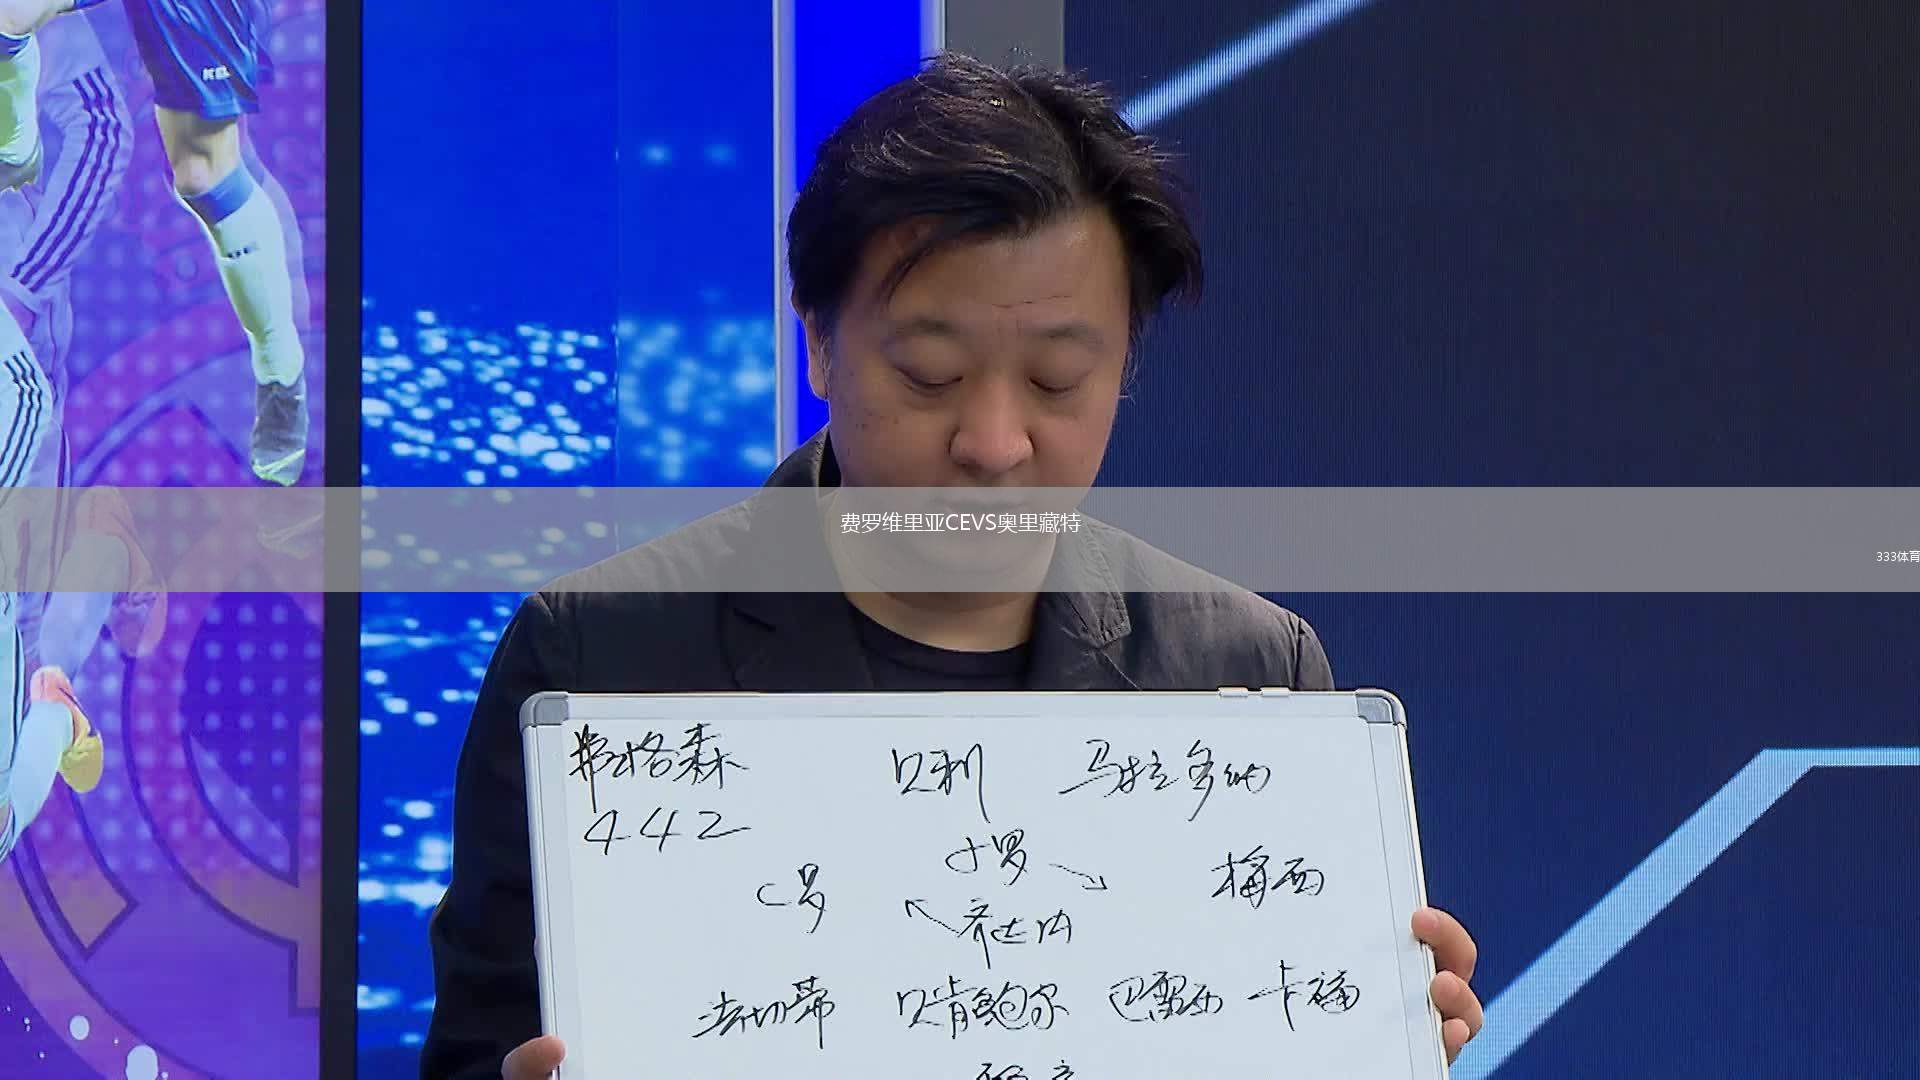 费罗维里亚CEVS奥里藏特
333体育
弗格森 贝利 马拉多纳
442
小罗
C罗 梅西
齐达内
法切蒂 贝肯鲍尔 巴雷西 卡福